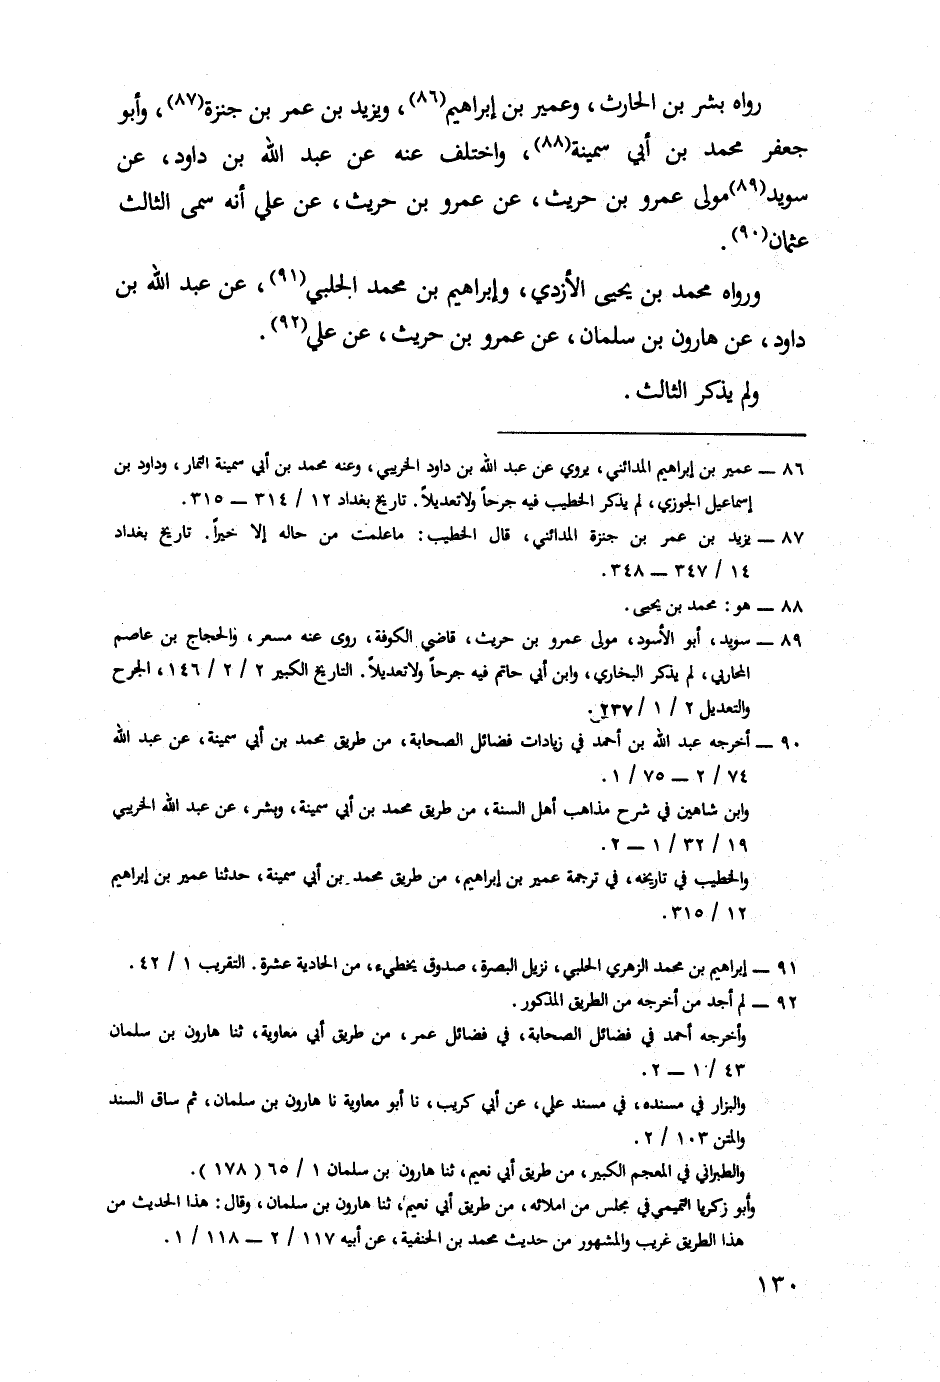 رواه بشر بن الحارث، وعمير بن إبراهيم(٨٦)، ويزيد بن عمر بن جنزة(٨٧)، وأبو
جعفر محمد بن أبي سمينة(٨٨)، واختلف عنه عن عبد الله بن داود، عن
سويد(٨٩)مولى عمرو بن حريث، عن عمرو بن حريث، عن علي أنه سمى الثالث
عثمان(٩٠).
ورواه محمد بن يحيى الأزدي، وإبراهيم بن محمد الحلبي(٩١)، عن عبد الله بن
داود، عن هارون بن سلمان، عن عمرو بن حريث، عن علي(٩٢).
ولم يذكر الثالث.
٨٦ ــ عمير بن إبراهيم المدائني، يروي عن عبد الله بن داود الخريبي، وعنه محمد بن أبي سمينة التمار، وداود بن
إسماعيل الجوزي، لم يذكر الخطيب فيه جرحاً ولاتعديلاً. تاريخ بغداد ١٢ / ٣١٤ ــ ٣١٥.
٨٧ ــ يزيد بن عمر بن جنزة المدائني، قال الخطيب: ماعلمت من حاله إلا خيراً. تاريخ بغداد
١٤ / ٣٤٧ ــ ٣٤٨.
٨٨ ــ هو: محمد بن يحيى.
٨٩ ــ سويد، أبو الأسود، مولى عمرو بن حريث، قاضي الكوفة، روى عنه مسعر، والحجاج بن عاصم
المحاربي، لم يذكر البخاري، وابن أبي حاتم فيه جرحاً ولاتعديلاً. التاريخ الكبير ٢ / ٢ / ١٤٦، الجرح
والتعديل ٢ / ١ / ٢٣٧.
٩٠ ــ أخرجه عبد الله بن أحمد في زيادات فضائل الصحابة، من طريق محمد بن أبي سمينة، عن عبد الله
٧٤ / ٢ ــ ٧٥ / ١.
وابن شاهين في شرح مذاهب أهل السنة، من طريق محمد بن أبي سمينة، وبشر، عن عبد الله الخريبي
١٩ / ٣٢ / ١ ــ ٢.
والخطيب في تاريخه، في ترجمة عمير بن إبراهيم، من طريق محمد بن أبي سمينة، حدثنا عمير بن إبراهيم
١٢ / ٣١٥.
٩١ ــ إبراهيم بن محمد الزهري الحلبي، نزيل البصرة، صدوق يخطيء، من الحادية عشرة. التقريب ١ / ٤٢.
٩٢ ــ لم أجد من أخرجه من الطريق المذكور.
وأخرجه أحمد في فضائل الصحابة، في فضائل عمر، من طريق أبي معاوية، ثنا هارون بن سلمان
٤٣ / ١ ــ ٢.
والبزار في مسنده، في مسند علي، عن أبي كريب، نا أبو معاوية نا هارون بن سلمان، ثم ساق السند
والمتن ١٠٣ / ٢.
والطبراني في المعجم الكبير، من طريق أبي نعيم، ثنا هارون بن سلمان ١ / ٦٥ (١٧٨).
وأبو زكريا التميمي في مجلس من املائه، من طريق أبي نعيم، ثنا هارون بن سلمان، وقال: هذا الحديث من
هذا الطريق غريب والمشهور من حديث محمد بن الحنفية، عن أبيه ١١٧ / ٢ ــ ١١٨ / ١.
١٣٠